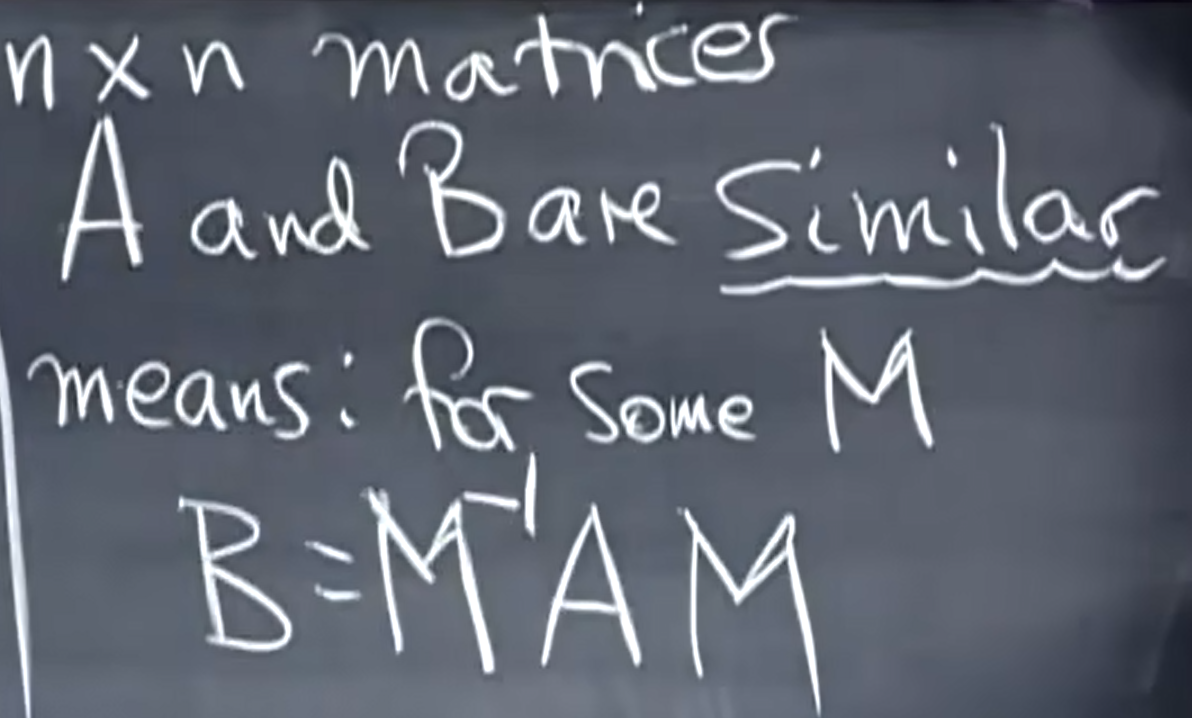 n × n matrices
A and B are Similar
means: for some M
B = M⁻¹ A M